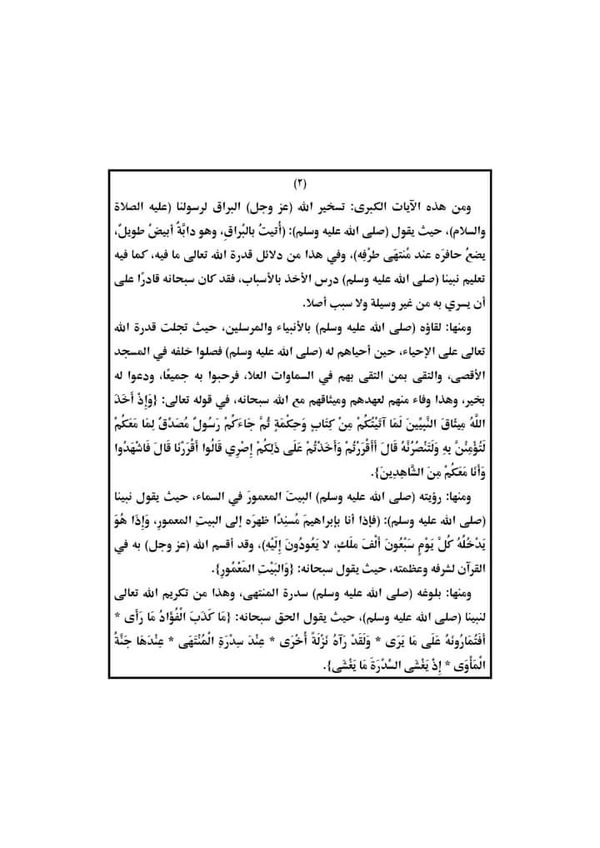 (٢)
ومن هذه الآيات الكبرى: تسخير الله (عز وجل) البراق لرسولنا (عليه الصلاة
والسلام)، حيث يقول (صلى الله عليه وسلم): (أُتيتُ بالبُراقِ، وهو دابَّةٌ أبيضُ طويلٌ،
يضعُ حافرَه عند مُنتهَى طرْفِه)، وفي هذا من دلائل قدرة الله تعالى ما فيه، كما فيه
تعليم نبينا (صلى الله عليه وسلم) درس الأخذ بالأسباب، فقد كان سبحانه قادرًا على
أن يسري به من غير وسيلة ولا سبب أصلا.
ومنها: لقاؤه (صلى الله عليه وسلم) بالأنبياء والمرسلين، حيث تجلت قدرة الله
تعالى على الإحياء، حين أحياهم له (صلى الله عليه وسلم) فصلوا خلفه في المسجد
الأقصى، والتقى بمن التقى بهم في السماوات العلا، فرحبوا به جميعًا، ودعوا له
بخير، وهذا وفاء منهم لعهدهم وميثاقهم مع الله سبحانه، في قوله تعالى: {وَإِذْ أَخَذَ
اللَّهُ مِيثَاقَ النَّبِيِّينَ لَمَا آتَيْتُكُمْ مِنْ كِتَابٍ وَحِكْمَةٍ ثُمَّ جَاءَكُمْ رَسُولٌ مُصَدِّقٌ لِمَا مَعَكُمْ
لَتُؤْمِنُنَّ بِهِ وَلَتَنْصُرُنَّهُ قَالَ أَأَقْرَرْتُمْ وَأَخَذْتُمْ عَلَى ذَلِكُمْ إِصْرِي قَالُوا أَقْرَرْنَا قَالَ فَاشْهَدُوا
وَأَنَا مَعَكُمْ مِنَ الشَّاهِدِينَ}.
ومنها: رؤيته (صلى الله عليه وسلم) البيتَ المعمورَ في السماء، حيث يقول نبينا
(صلى الله عليه وسلم): (فإذا أنا بإبراهيمَ مُسنِدًا ظهرَه إلى البيتِ المعمورِ، وَإِذَا هُوَ
يَدْخُلُهُ كُلَّ يَوْمٍ سَبْعُونَ أَلْفَ مَلَكٍ، لا يَعُودُونَ إِلَيْهِ)، وقد أقسم الله (عز وجل) به في
القرآن لشرفه وعظمته، حيث يقول سبحانه: {وَالبَيْتِ المَعْمُورِ}.
ومنها: بلوغه (صلى الله عليه وسلم) سدرة المنتهى، وهذا من تكريم الله تعالى
لنبينا (صلى الله عليه وسلم)، حيث يقول الحق سبحانه: {مَا كَذَبَ الْفُؤَادُ مَا رَأَى *
أَفَتُمَارُونَهُ عَلَى مَا يَرَى * وَلَقَدْ رَآهُ نَزْلَةً أُخْرَى * عِنْدَ سِدْرَةِ الْمُنْتَهَى * عِنْدَهَا جَنَّةُ
الْمَأْوَى * إِذْ يَغْشَى السِّدْرَةَ مَا يَغْشَى}.